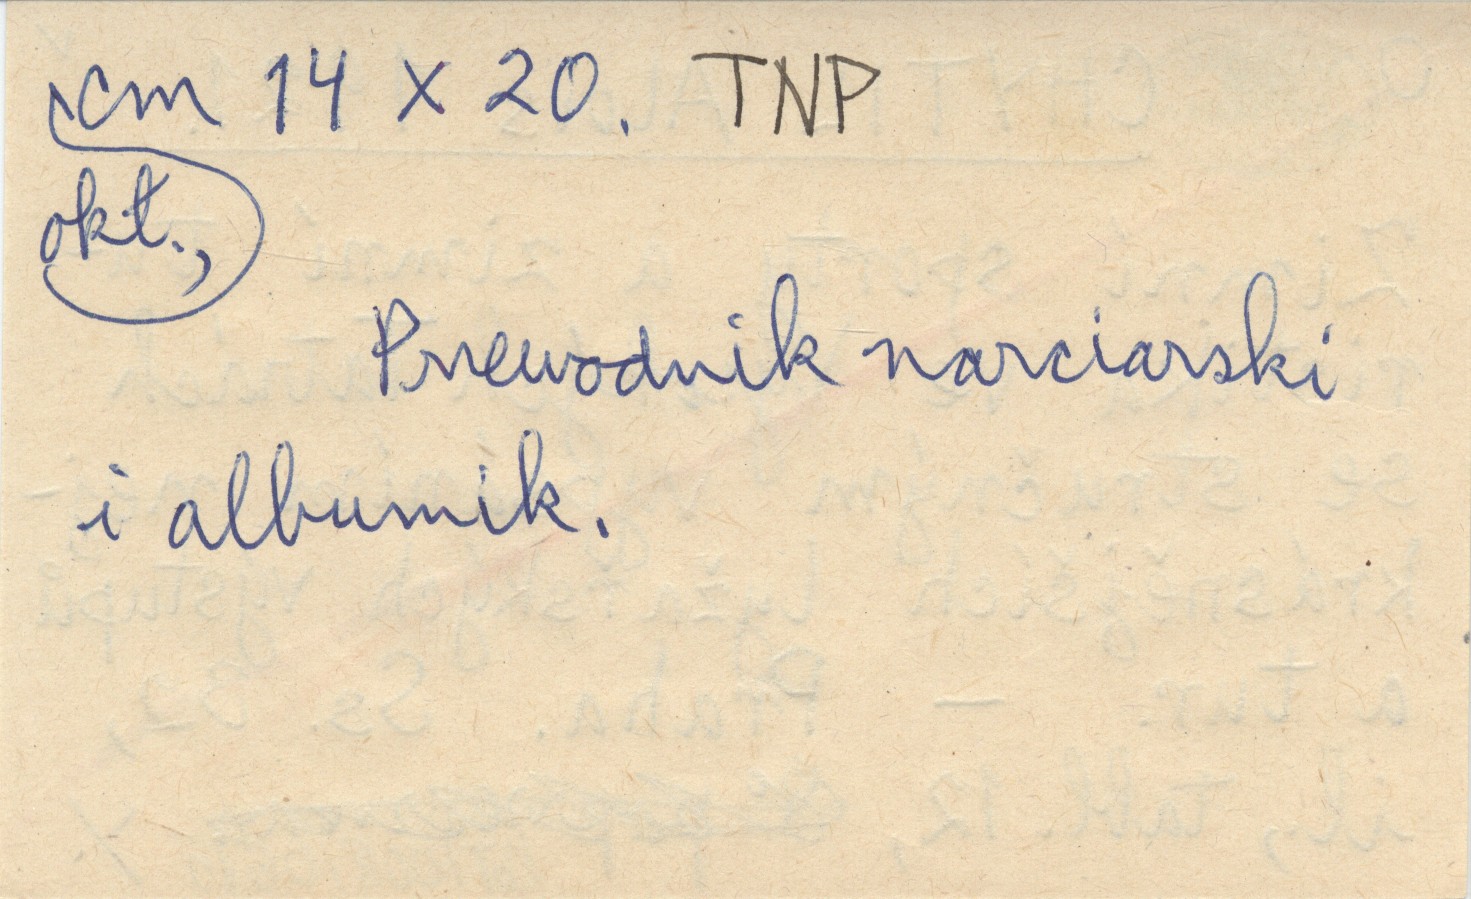 cm 14 x 20. TNP
okt.,
Przewodnik narciarski
i albumik.